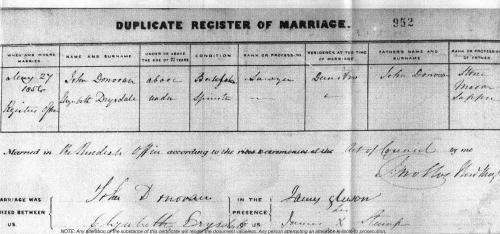 DUPLICATE REGISTER OF MARRIAGE. 952
WHEN AND WHERE MARRIED
NAME AND SURNAME
UNDER OR ABOVE THE AGE OF 21 YEARS
CONDITION
RANK OR PROFESSION
RESIDENCE AT THE TIME OF MARRIAGE
FATHER'S NAME AND SURNAME
RANK OR PROFESSION OF FATHER
May 27 John Donovan above Bachelor Sawyer John Donovan Stone
1856 Mason
Registers Office Elizabeth Drysdale under Spinster
Married in the Residents Office according to the rites & ceremonies of the Act of Council by me
MARRIAGE WAS John Donovan IN THE James Gleeson
BETWEEN PRESENCE his
US. Elizabeth Drysdale OF US. James X Stump
NOTE: Any alteration of the substance of this certificate will render the document valueless. Any person attempting an alteration is liable to prosecution.